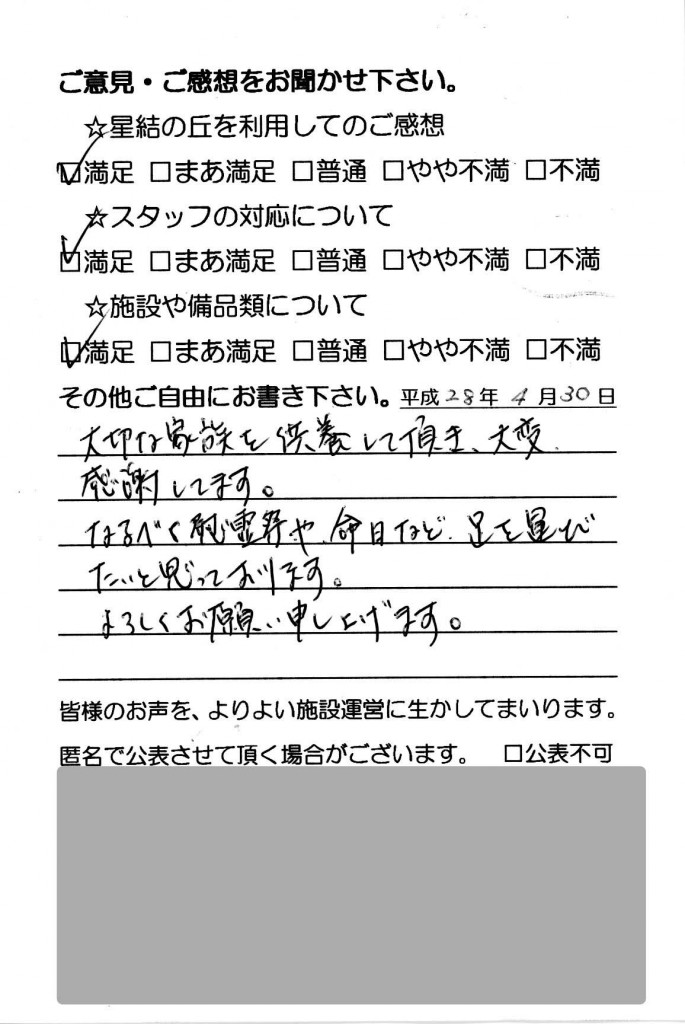 ご意見・ご感想をお聞かせ下さい。
☆星結の丘を利用してのご感想
☑満足 □まあ満足 □普通 □やや不満 □不満
☆スタッフの対応について
☑満足 □まあ満足 □普通 □やや不満 □不満
☆施設や備品類について
☑満足 □まあ満足 □普通 □やや不満 □不満
その他ご自由にお書き下さい。平成28年4月30日
大切な家族を供養して頂き、大変
感謝してます。
なるべく慰霊祭や、命日など、足を運び
たいと思っております。
よろしくお願い申し上げます。
皆様のお声を、よりよい施設運営に生かしてまいります。
匿名で公表させて頂く場合がございます。 □公表不可